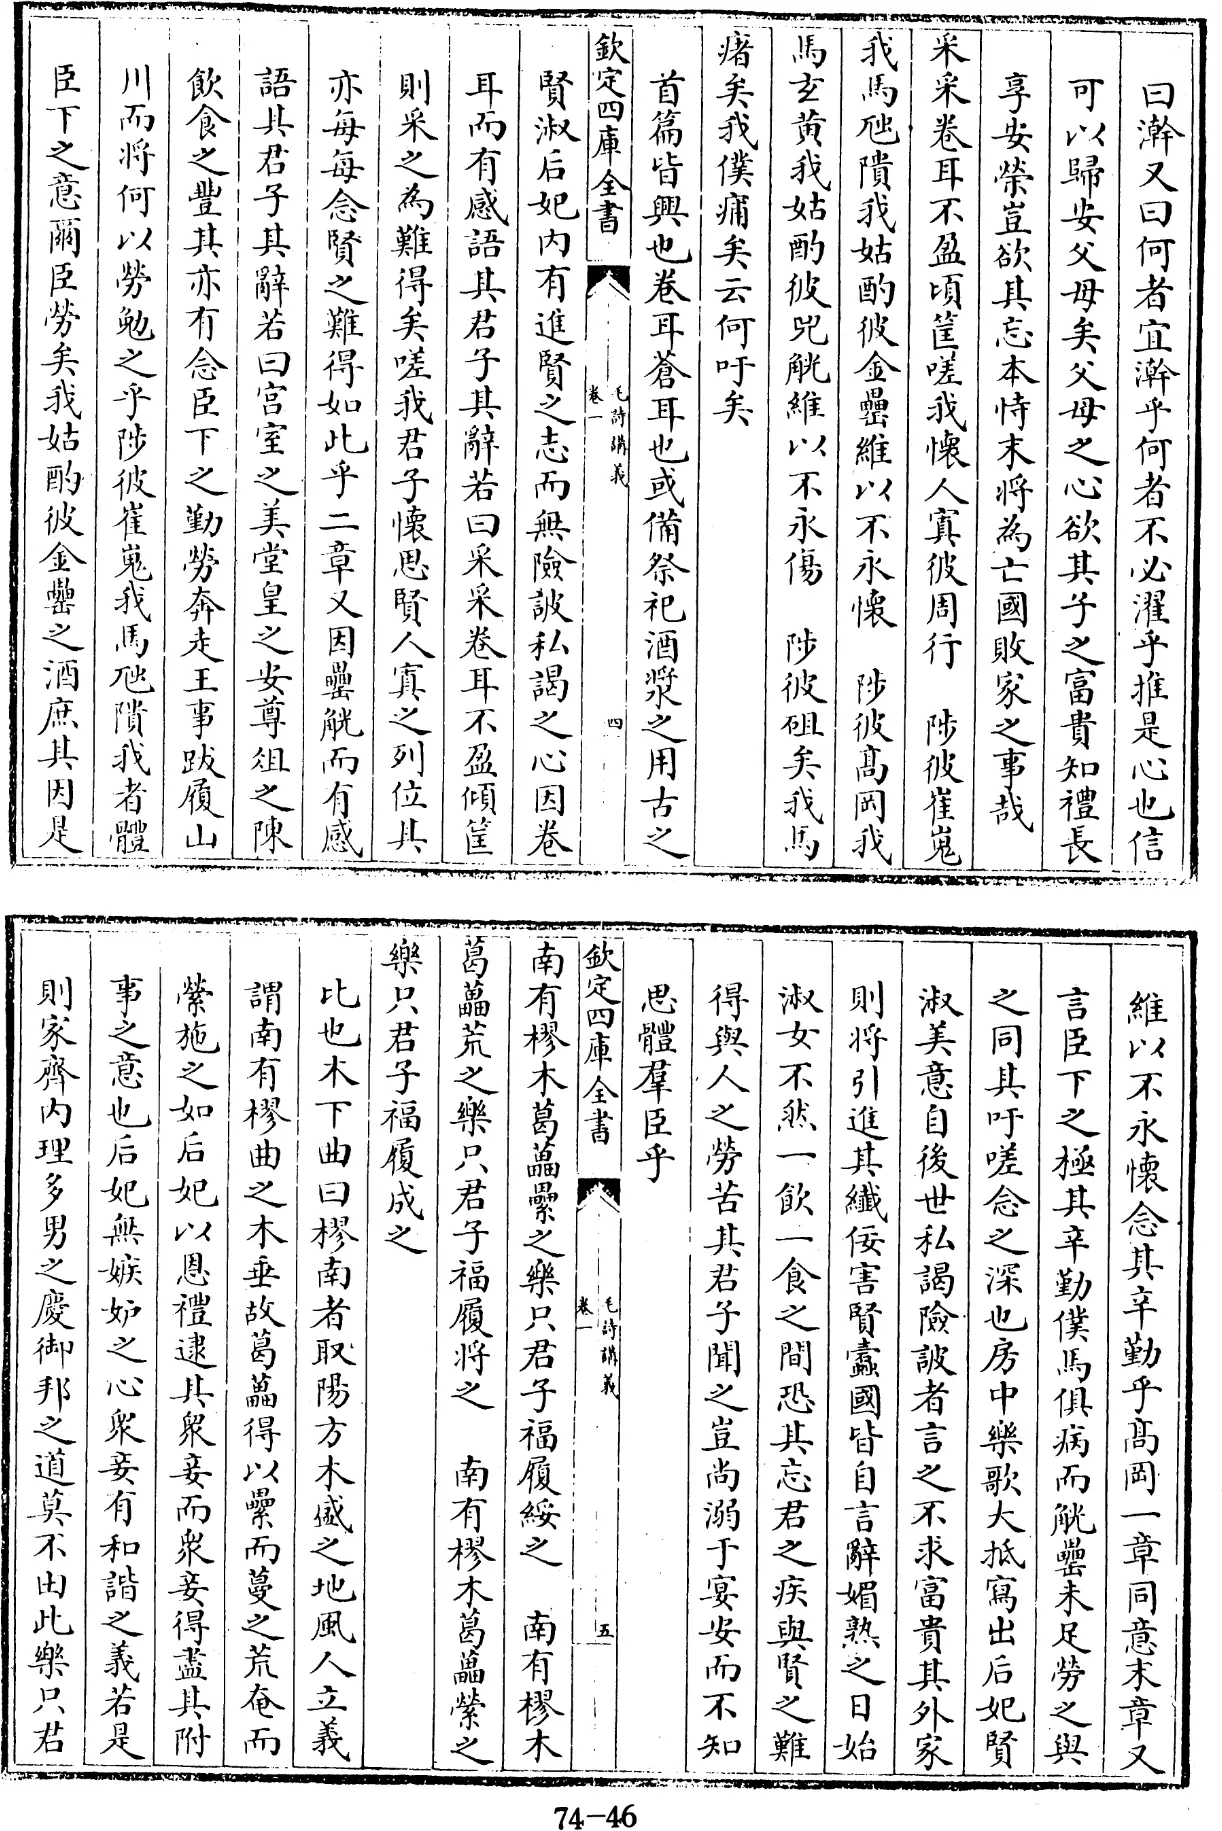 曰澣又曰何者宜澣乎何者不必濯乎推是心也信
可以歸安父母矣父母之心欲其子之富貴知禮長
享安榮豈欲其忘本恃末將為亡國敗家之事哉
采采卷耳不盈頃筐嗟我懷人寘彼周行　陟彼崔嵬
我馬虺隤我姑酌彼金罍維以不永懷　陟彼髙岡我
馬玄黄我姑酌彼兕觥維以不永傷　陟彼砠矣我馬
瘏矣我僕痡矣云何吁矣
首篇皆興也卷耳蒼耳也或備祭祀酒漿之用古之
欽定四庫全書
毛詩講義
卷一
四
賢淑后妃内有進賢之志而無險詖私謁之心因卷
耳而有感語其君子其辭若曰采采卷耳不盈傾筐
則采之為難得矣嗟我君子懷思賢人寘之列位其
亦每每念賢之難得如此乎二章又因罍觥而有感
語其君子其辭若曰宫室之美堂皇之安尊俎之陳
飲食之豐其亦有念臣下之勤勞奔走王事跋履山
川而將何以勞勉之乎陟彼崔嵬我馬虺隤我者體
臣下之意爾臣勞矣我姑酌彼金罍之酒庶其因是
維以不永懷念其辛勤乎髙岡一章同意末章又
言臣下之極其辛勤僕馬俱病而觥罍未足勞之與
之同其吁嗟念之深也房中樂歌大抵寫出后妃賢
淑美意自後世私謁險詖者言之不求富貴其外家
則將引進其纎佞害賢蠧國皆自言辭媚熟之日始
淑女不然一飲一食之間恐其忘君之疾與賢之難
得與人之勞苦其君子聞之豈尚溺于宴安而不知
思體羣臣乎
欽定四庫全書
毛詩講義
卷一
五
南有樛木葛藟纍之樂只君子福履綏之　南有樛木
葛藟荒之樂只君子福履將之　南有樛木葛藟縈之
樂只君子福履成之
比也木下曲曰樛南者取陽方木盛之地風人立義
謂南有樛曲之木垂故葛藟得以纍而蔓之荒奄而
縈施之如后妃以恩禮逮其衆妾而衆妾得盡其附
事之意也后妃無嫉妒之心衆妾有和諧之義若是
則家齊内理多男之慶御邦之道莫不由此樂只君
74-46